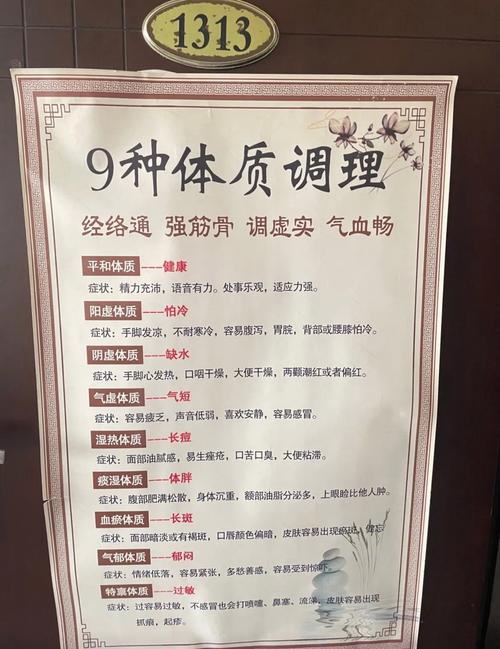 1313
9种体质调理
经络通 强筋骨 调虚实 气血畅
平和体质---健康
症状：精力充沛，语音有力。处事乐观，适应力强。
阳虚体质---怕冷
症状：手脚发凉，不耐寒冷，容易腹泻，胃脘、背部或腰膝怕冷。
阴虚体质---缺水
症状：手脚心发热，口咽干燥，大便干燥，两颧潮红或者偏红。
气虚体质---气短
症状：容易疲乏，声音低弱，喜欢安静，容易感冒。
湿热体质---长痘
症状：面部油腻感，易生痤疮，口苦口臭，大便粘滞。
痰湿体质---体胖
症状：腹部肥满松散，身体沉重，额部油脂分泌多，上眼睑比他人肿。
血瘀体质---长斑
症状：面部暗淡或有褐斑，口唇颜色偏暗，皮肤容易出现瘀斑，健忘
气郁体质---郁闷
症状：情绪低落，容易紧张，多愁善感，容易受到惊吓。
特禀体质---过敏
症状：过容易过敏，不感冒也会打喷嚏、鼻塞、流涕，皮肤容易出现
抓痕，起疹。